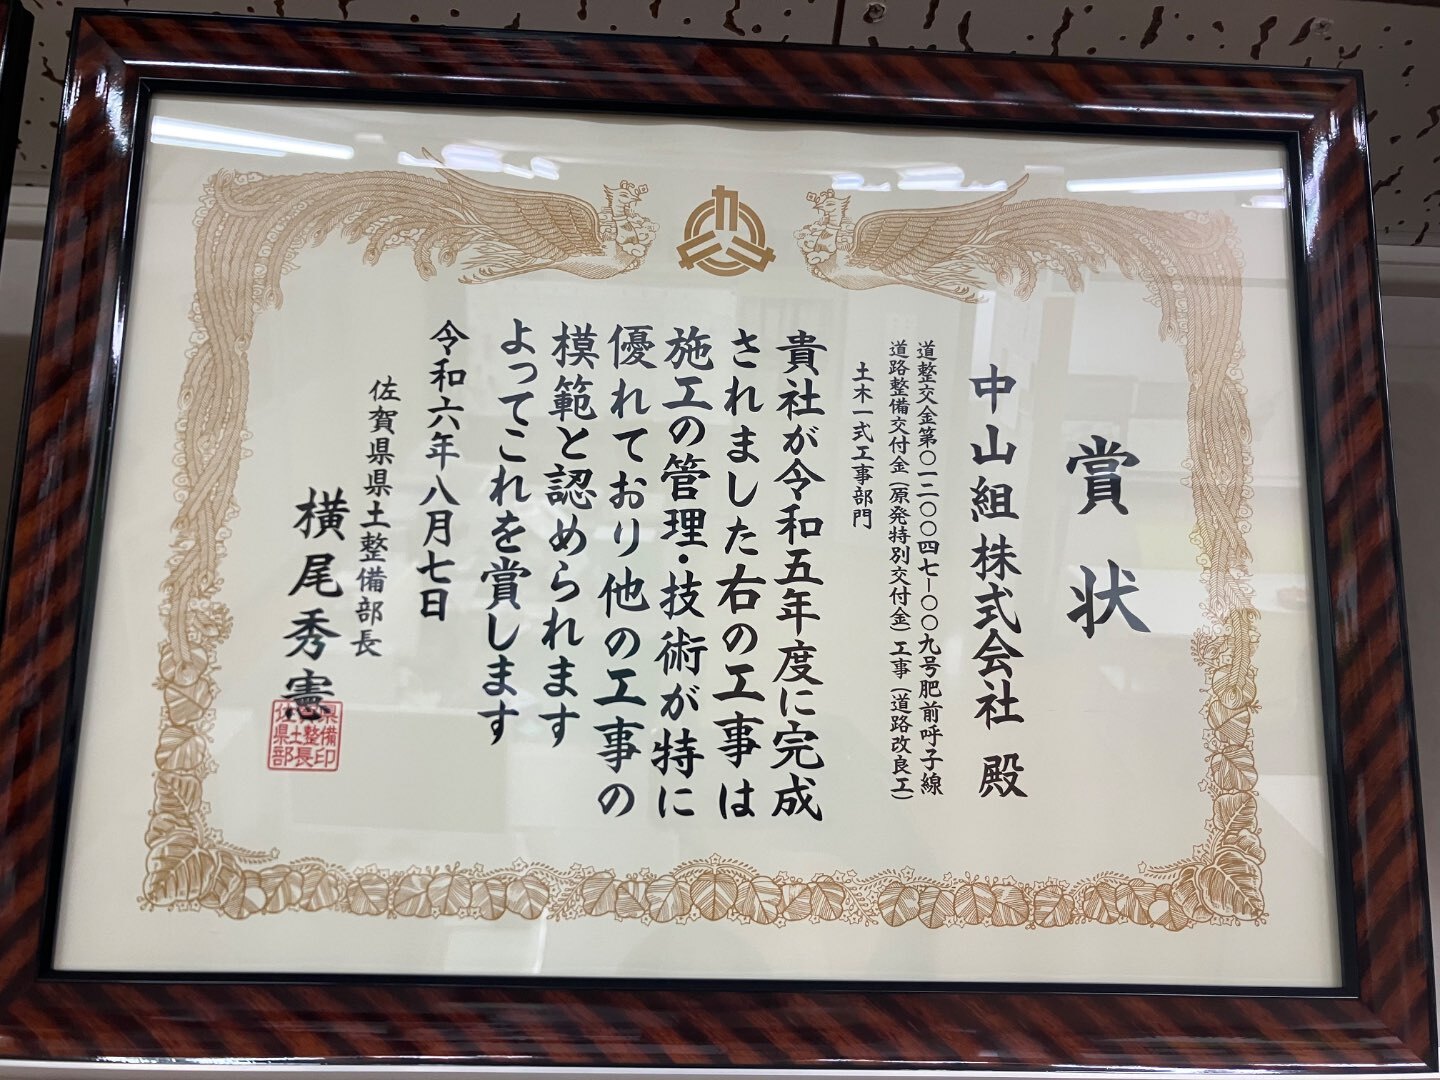 賞状
中山組株式会社 殿
道整交金第〇一二〇〇四七―〇〇九号肥前呼子線
道路整備交付金(原発特別交付金)工事(道路改良工)
土木一式工事部門
貴社が令和五年度に完成
されました右の工事は
施工の管理・技術が特に
優れており他の工事の
模範と認められます
よってこれを賞します
令和六年八月七日
佐賀県県土整備部長
横尾秀憲